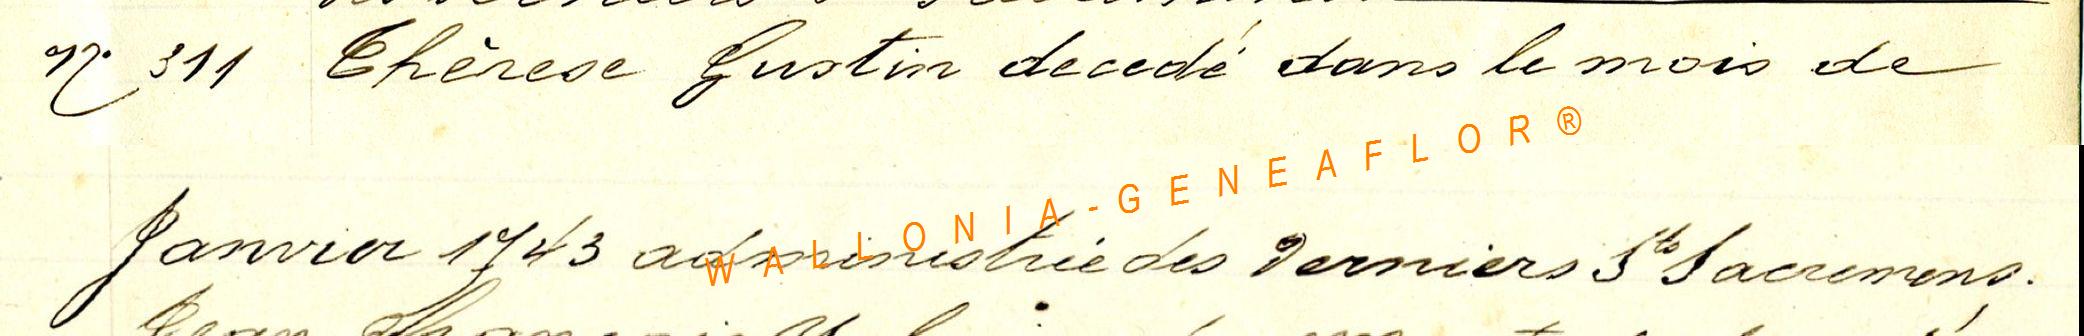 N° 311 Thérese Gustin decedé dans le mois de
WALLONIA-GENEAFLOR®
Janvier 1743 administrée des Derniers Sts Sacremens.